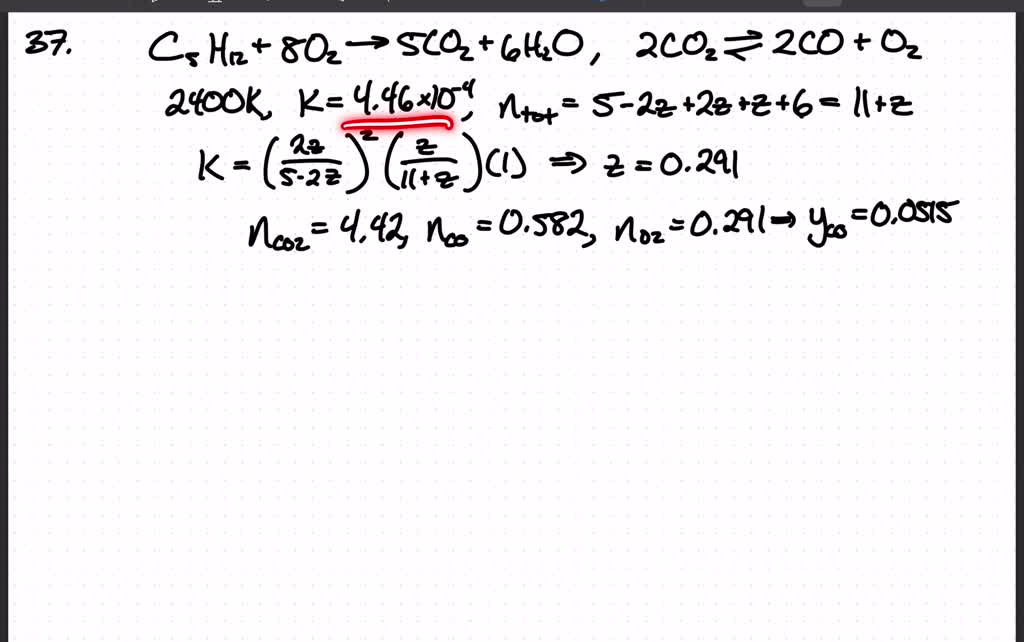 37. C₅H₁₂ + 8O₂ → 5CO₂ + 6H₂O, 2CO₂ ⇌ 2CO + O₂
2400K, K = 4.46×10⁻⁴, n_tot = 5-2z+2z+z+6 = 11+z
K = (2z/(5-2z))² (z/(11+z)) (1) ⇒ z = 0.291
n_CO₂ = 4.42, n_CO = 0.582, n_O₂ = 0.291 → y_CO = 0.0515